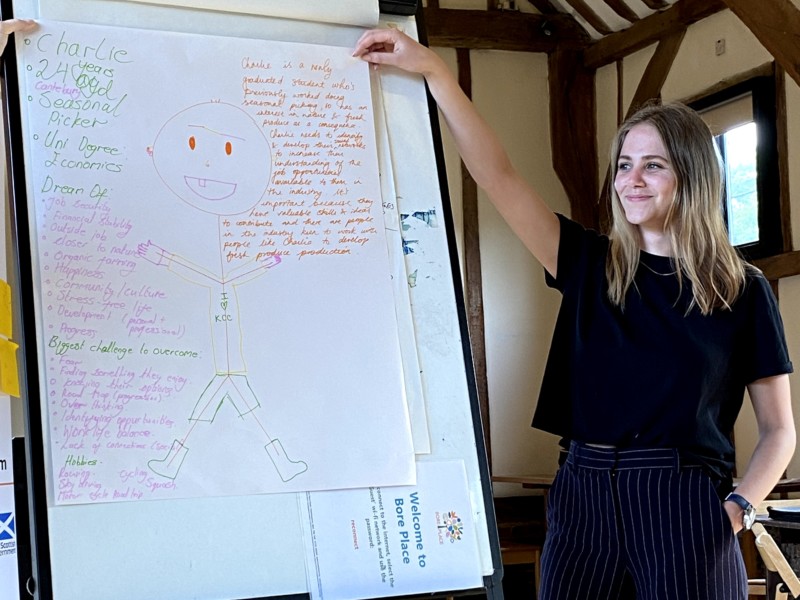 Charlie
24 years old
Canterbury
Seasonal
Picker
Uni Degree:
Economics
Dream Of:
Job security
Financial stability
Outside job
closer to nature
Organic farming
Happiness
Community/culture
Stress-free life
Development (personal +
professional)
Progress
Biggest challenge to overcome:
Fear
Finding something they enjoy
Road map (progression)
Over thinking
Identifying opportunities
Work life balance
Lack of connections (social)
Hobbies-
Rowing Cycling
Sky diving Squash
Motor cycle road trip
Charlie is a
graduated student who's
previously worked doing
seasonal picking so has an
interest in nature & fresh
produce as a consequence.
Charlie needs to identify
& develop their networks
to increase their
understanding of the
job opportunities
available to them in
the industry. It's
important because they
have valuable skills & ideas
to contribute and there are people
in the industry keen to work with
people like Charlie to develop
fresh produce production
I
KCC
Welcome to
Bore Place
connect to the internet, select the
wi-fi network and use the
password: